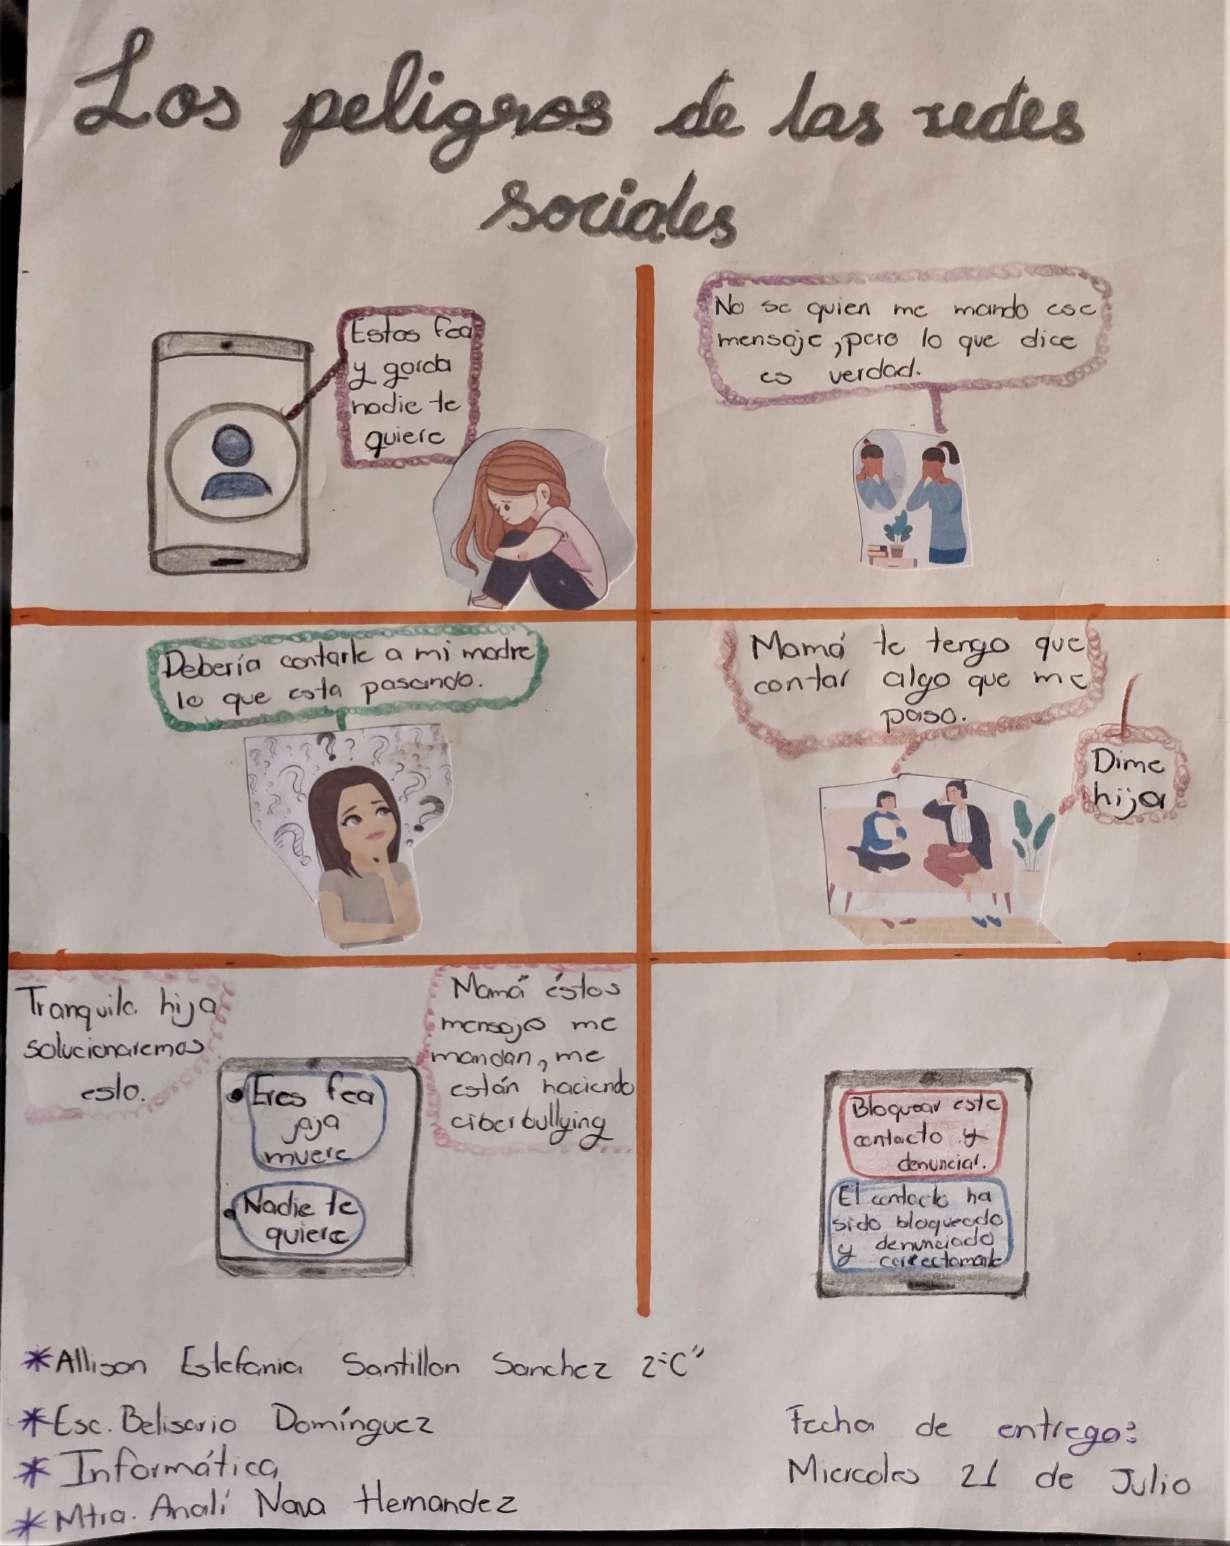 Los peligros de las redes
sociales
Estas fea
y gorda
nadie te
quiere
No se quien me mando ese
mensaje, pero lo que dice
es verdad.
Debería contarle a mi madre
lo que esta pasando.
Mamá te tengo que
contar algo que me
paso.
Dime
hija
Tranquila hija
solucionaremos
esto.
Mamá éstos
mensajes me
mandan, me
están haciendo
ciberbullying
Eres fea
jaja
muere
Nadie te
quiere
Bloquear este
contacto y
denunciar.
El contacto ha
sido bloqueado
y denunciado
correctamente
*Allison Estefania Santillan Sanchez 2-"C"
*Esc. Belisario Domínguez
*Informática
*Mtra. Analí Nava Hernandez
Fecha de entrega:
Miercoles 21 de Julio